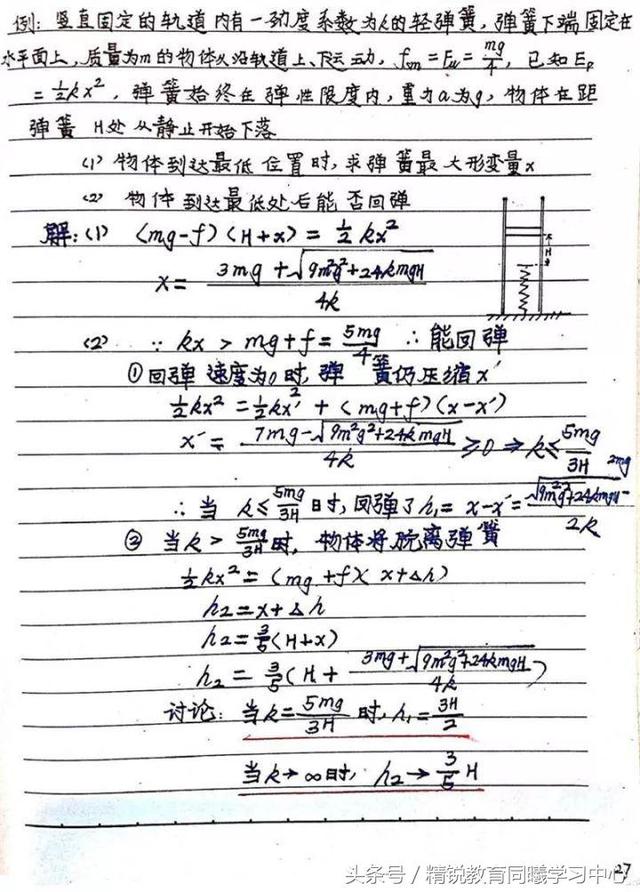 例: 竖直固定的轨道内有一劲度系数为k的轻弹簧, 弹簧下端固定在
水平面上, 质量为m的物体从沿轨道上、下运动, fsm = Fμ = mg/4, 已知 Ep
= ½kx², 弹簧始终在弹性限度内, 重力a为g, 物体在距
弹簧 H处从静止开始下落
(1) 物体到达最低位置时, 求弹簧最大形变量x
(2) 物体到达最低处后能否回弹
解: (1) (mg-f)(H+x) = ½kx²
x = (3mg + √(9m²g²+24kmgH))/4k
H
(2) ∵ kx > mg+f = 5mg/4 ∴ 能回弹
① 回弹速度为0时, 弹簧仍压缩x′
½kx² = ½kx′² + (mg+f)(x-x′)
x′ = (7mg-√(9m²g²+24kmgH))/4k ≥0 ⇒ k≤5mg/3H
∴ 当 k≤5mg/3H 时, 回弹了h₁= x-x′= (√(9m²g²+24kmgH)-2mg)/2k
② 当k> 5mg/3H 时, 物体将脱离弹簧
½kx² = (mg+f)(x+Δh)
h₂=x+Δh
h₂=3/5(H+x)
h₂ = 3/5(H + (3mg+√(9m²g²+24kmgH))/4k)
讨论: 当k=5mg/3H 时, h₁=3H/2
当k→∞时, h₂→3/5H
27
头条号 / 精锐教育同曦学习中心